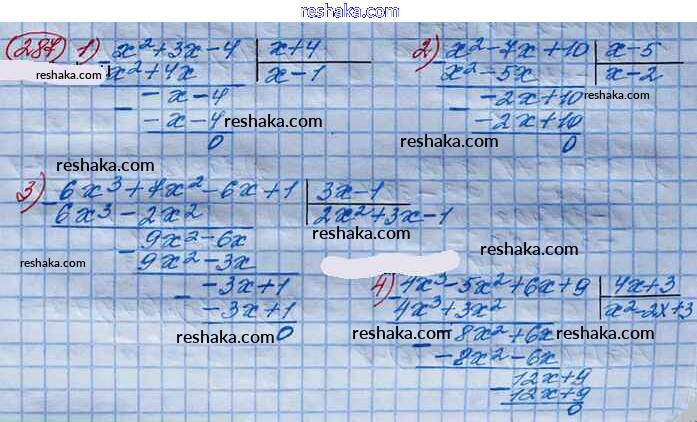 reshaka.com
(287) 1) x²+3x-4 | x+4
x²+4x | x-1
-x-4
-x-4
0
reshaka.com
reshaka.com
reshaka.com
2) x²-7x+10 | x-5
x²-5x | x-2
-2x+10
-2x+10
0
reshaka.com
reshaka.com
reshaka.com
3) 6x³+7x²-6x+1 | 3x-1
6x³-2x² | 2x²+3x-1
9x²-6x
9x²-3x
-3x+1
-3x+1
0
reshaka.com
reshaka.com
reshaka.com
reshaka.com
4) 4x³-5x²+6x+9 | 4x+3
4x³+3x² | x²-2x+3
-8x²+6x
-8x²-6x
12x+9
12x+9
0
reshaka.com
reshaka.com
reshaka.com
reshaka.com